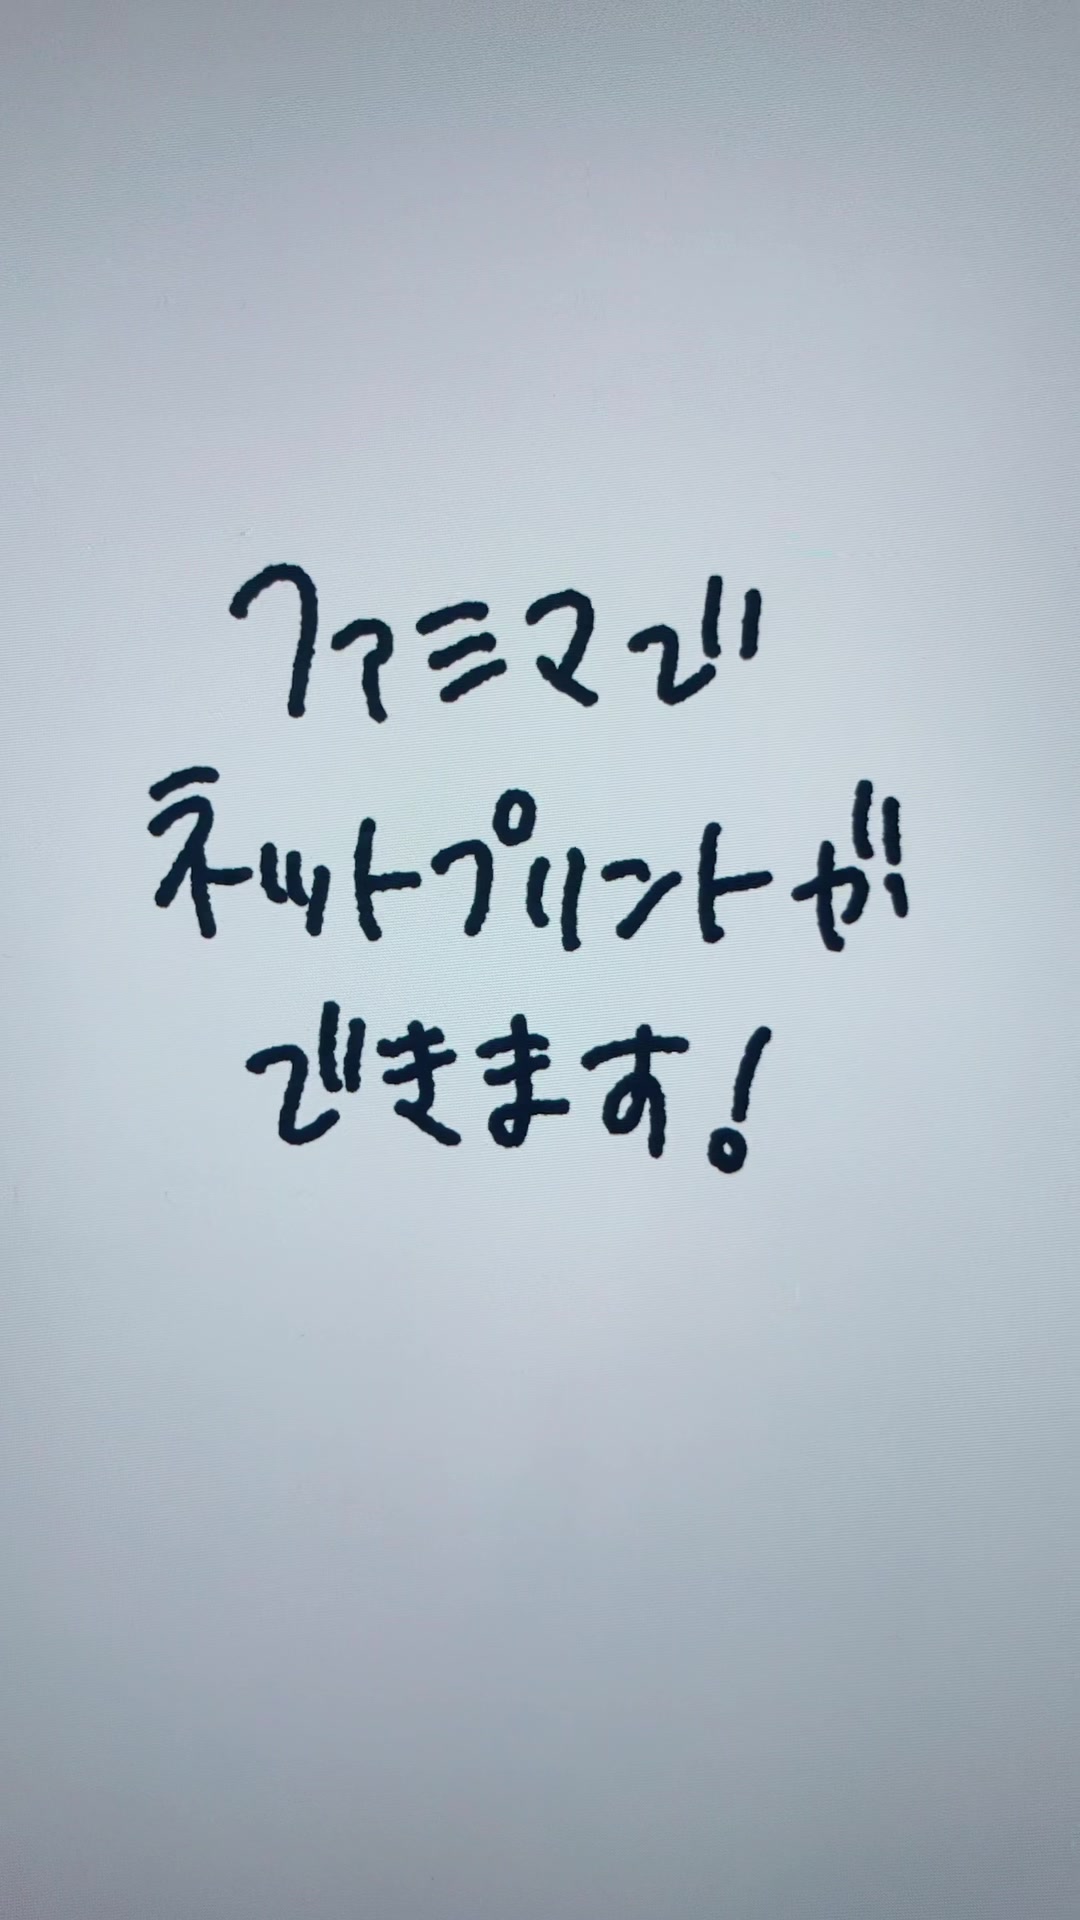 ファミマで
ネットプリントが
できます!